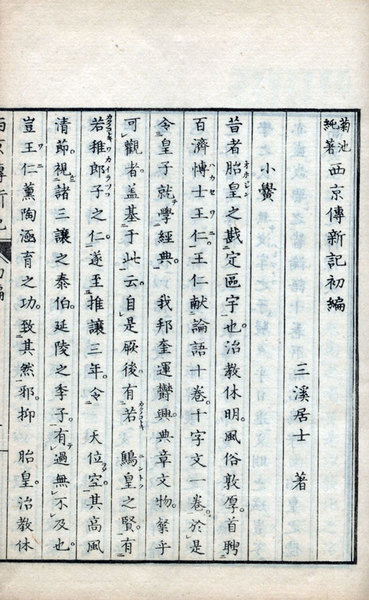 菊池純著 西京傳新記初編
三溪居士 著
小黌
昔者胎皇之戡定區宇也治教休明風俗敦厚首聘
百濟博士王仁王仁献論語十卷千字文一卷於是
令皇子就學經典我邦奎運欝興典章文物粲乎
可觀者盖基于此云自是厥後有若鷦皇之賢有
若稚郎子之仁遂至推讓三年令天位空其高風
清節視諸三讓之泰伯延陵之季子有過無不及也
豈王仁薫陶涵育之功致其然邪抑胎皇治教休